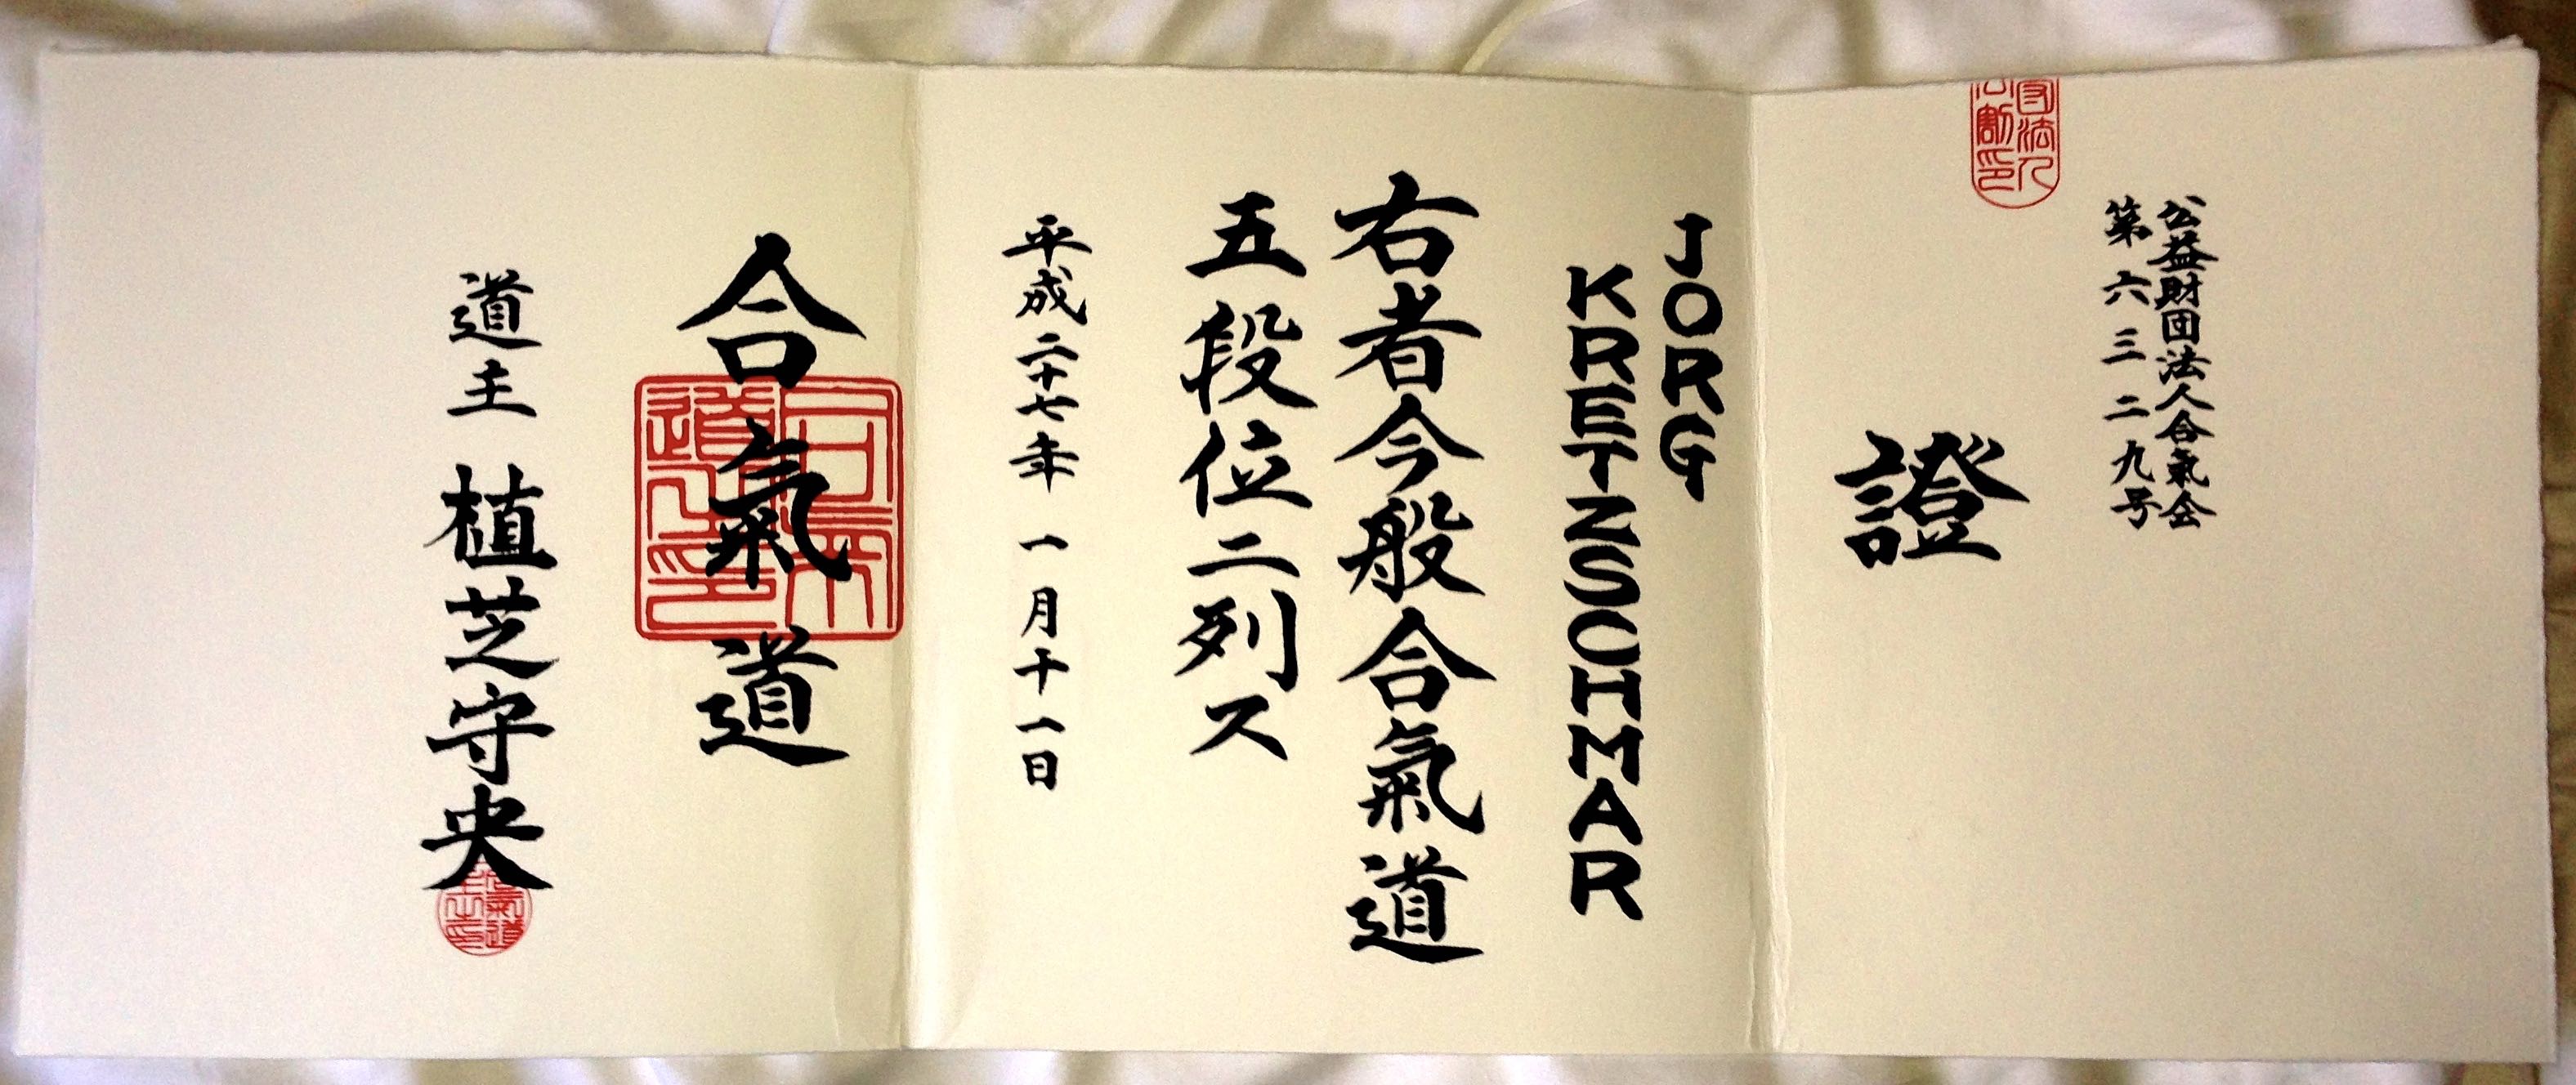 公益財団法人合氣会
第六三二九号
證
JORG
KRETZSCHMAR
右者今般合氣道
五段位ニ列ス
平成二十七年一月十一日
合氣道
道主 植芝守央